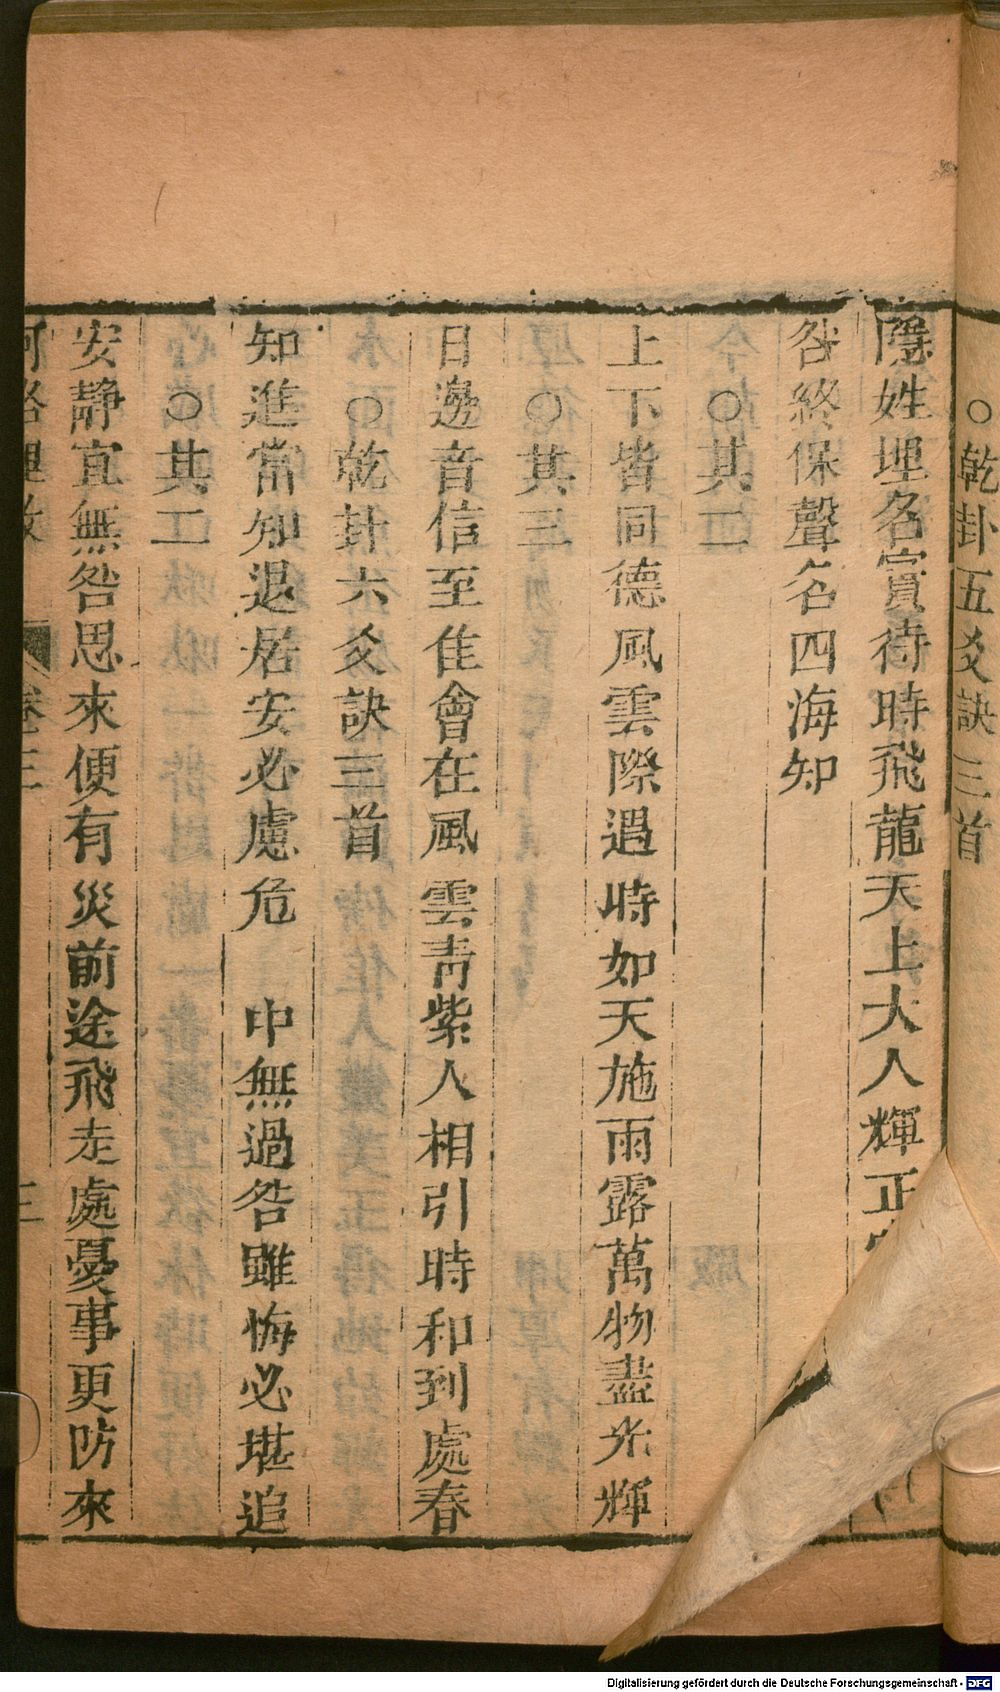 ○乾卦五爻訣三首
隱姓埋名實待時飛龍天上大人輝正
咎終保聲名四海知
○其二
上下皆同德風雲際遇時如天施雨露萬物盡光輝
○其三
日邊音信至佳會在風雲青紫人相引時和到處春
○乾卦六爻訣三首
知進當知退居安必慮危　中無過咎雖悔必堪追
○其二
安静宜無咎思來便有災前途飛走處憂事更防來
河洛理數　卷三　三
Digitalisierung gefördert durch die Deutsche Forschungsgemeinschaft - DFG